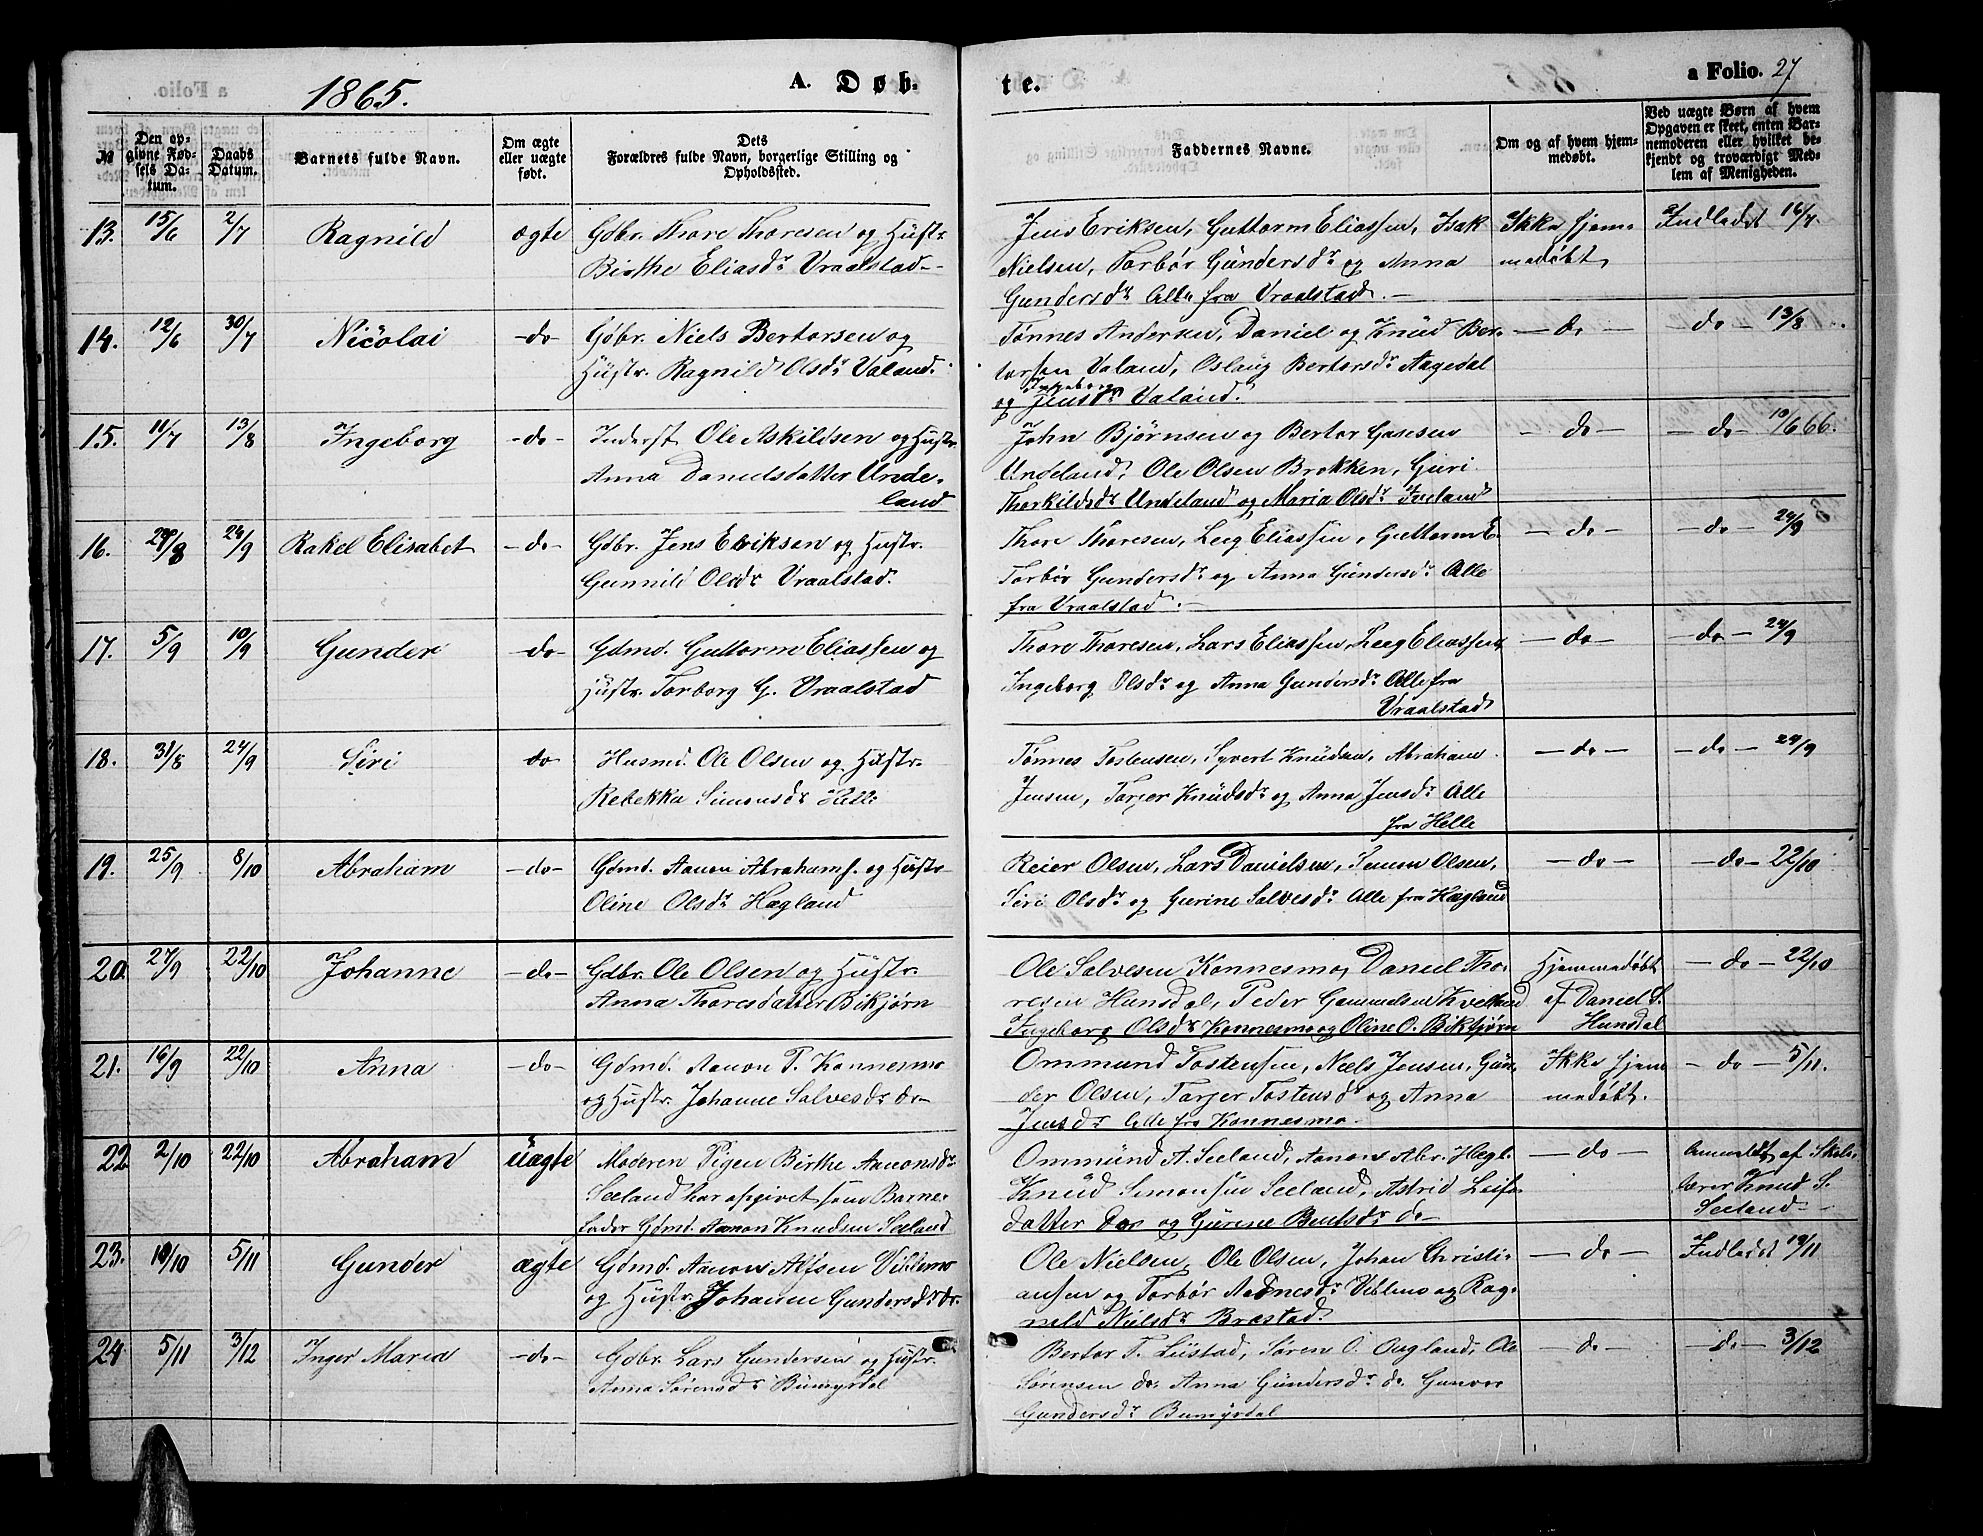 1865.
A. Døb-
te.
a Folio. 27
№
Den op-
givne Fød-
sels Da-
tum.
Daabs
Datum.
Barnets fulde Navn.
Om ægte
eller uægte
født.
Dets
Forældres fulde Navn, borgerlige Stilling og
Opholdssted.
Faddernes Navne.
Om og af hvem hjem-
medøbt.
Ved uægte Børn af hvem
Opgaven er skeet, enten Bar-
nemoderen eller hvilket be-
kjendt og troværdigt Med-
lem af Menigheden.
13. 15/6 2/7 Ragnild ægte
Gdbr. Thore Thoresen og Hustr.
Birthe Eliasdr Vraalstad-
Jens Eriksen, Guttorm Eliassen, Isak
Nielsen, Torbør Gundersdr og Anna
Gundersdr Alle fra Vraalstad.-
Ikke hjem-
medøbt
Indladet 16/7.
14. 12/6 30/7 Nicolai -do-
Gdbr. Niels Bertorsen og
Hustr. Ragnild Olsdr Valand.
Tønnes Andersen, Daniel og Knud Ber-
torsen Valand, Oslaug Bertorsdr Aagedal
og Ingeborg Jensdr Valand.
-do- -do- 13/8
15. 11/7 13/8 Ingeborg -do-
Inderst Ole Askildsen og Hustr.
Anna Danielsdatter Unde-
land
John Bjørnsen og Bertor Gasesen
Undeland, Ole Olsen Brokken, Guri
Thorkildsdr Undeland og Maria Olsdr Iveland
-do- -do- 10/6 66.
16. 29/8 24/9 Rakel Elisabet -do-
Gdbr. Jens Eriksen og Hustr.
Gunnild Olsdr Vraalstad.
Thore Thoresen, Leeg Eliassen, Guttorm E.
Torbør Gundersdr og Anna Gundersdr Alle
fra Vraalstad.-
-do- -do- 24/9
17. 5/9 10/9 Gunder -do-
Gdmd. Guttorm Eliassen og
Hustr. Torborg G. Vraalstad
Thore Thoresen, Lars Eliassen, Leeg Eliassen
Ingeborg Olsdr og Anna Gundersdr Alle fra
Vraalstad
-do- -do- 24/9
18. 31/8 24/9 Siri do
Husmd. Ole Olsen og Hustr.
Rebekka Simonsdr Helle
Tønnes Tostensen, Syvert Knudsen, Abraham
Jensen, Tarjer Knudsdr og Anna Jensdr Alle
fra Helle
-do- -do- 24/9
19. 25/9 8/10 Abraham -do-
Gdmd. Aanon Abrahams. og Hustr
Oline Olsdr Hægland
Reier Olsen, Lars Danielsen, Simon Olsen,
Siri Olsdr og Gurine Salvesdr Alle fra Hægland
-do- -do- 22/10
20. 27/9 22/10 Johanne -do-
Gdbr. Ole Olsen og Hustr.
Anna Thoresdatter Bikjørn
Ole Salvesen Konnesmo, Daniel Tho-
resen Hunsdal, Peder Gamuelsen Kvelland
Ingeborg Olsdr Konnesmo og Oline O. Bikbjørn
Hjemmedøbt
af Daniel S.
Hunsdal
-do- 22/10
21. 16/9 22/10 Anna -do-
Gdmd. Aanon T. Konnesmo
og Hustr. Johanne Salvesdr do-
Ommund Tostensen, Niels Jensen, Gun-
der Olsen, Tarjer Tostensdr og Anna
Jensdr Alle fra Konnesmo-
Ikke hjem
medøbt.
-do- 5/11.
22 2/10 22/10 Abraham uægte
Moderen Pigen Birthe Aanonsdr
Seeland har opgivet som Barne-
fader Gdmd. Aanon Knudsen Seeland
Ommund A. Seeland, Aanon Abr. Hægl.
Knud Simonsen Seeland, Astrid Leifs-
datter do og Gurine Bentsdr do-
-do-
Anmeldt af Skole-
lærer Knud S.
Seeland-
23. 10/10 5/11 Gunder ægte
Gdmd. Aanon Alfsen Viblemo
og Hustr. Johanne Gundersdr do.
Ole Nielsen, Ole Olsen, Johan Christi-
ansen og Torbør Aanonsdr Viblemo og Rag-
nild Nielsdr Bræstad
-do-
Indladet 19/11
24 5/11 3/12 Inger Maria -do-
Gdbr. Lars Gundersen og Hustr.
Anna Sørensdr Bumyrdal
Bertor T. Liistad, Søren O. Augland, Ole
Sørensen do, Anna Gundersdr do. Gunvor
Gundersdr Bumyrdal
-do- -do- 3/12